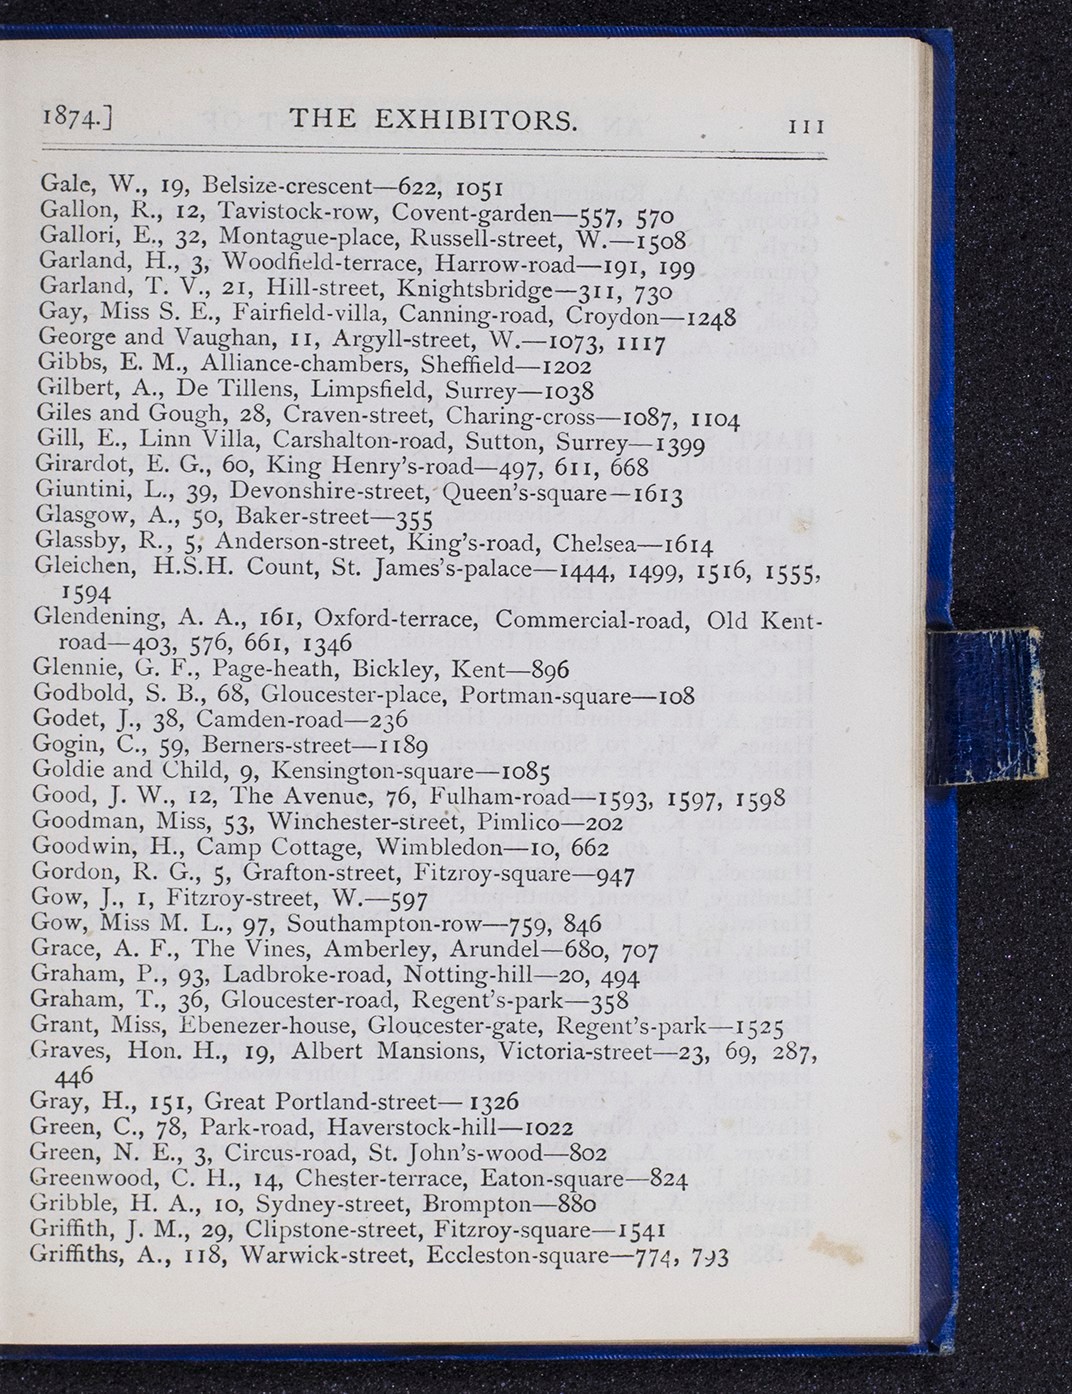 1874.] THE EXHIBITORS. 111
Gale, W., 19, Belsize-crescent—622, 1051
Gallon, R., 12, Tavistock-row, Covent-garden—557, 570
Gallori, E., 32, Montague-place, Russell-street, W.—1508
Garland, H., 3, Woodfield-terrace, Harrow-road—191, 199
Garland, T. V., 21, Hill-street, Knightsbridge—311, 730
Gay, Miss S. E., Fairfield-villa, Canning-road, Croydon—1248
George and Vaughan, 11, Argyll-street, W.—1073, 1117
Gibbs, E. M., Alliance-chambers, Sheffield—1202
Gilbert, A., De Tillens, Limpsfield, Surrey—1038
Giles and Gough, 28, Craven-street, Charing-cross—1087, 1104
Gill, E., Linn Villa, Carshalton-road, Sutton, Surrey—1399
Girardot, E. G., 60, King Henry's-road—497, 611, 668
Giuntini, L., 39, Devonshire-street, Queen's-square—1613
Glasgow, A., 50, Baker-street—355
Glassby, R., 5, Anderson-street, King's-road, Chelsea—1614
Gleichen, H.S.H. Count, St. James's-palace—1444, 1499, 1516, 1555,
1594
Glendening, A. A., 161, Oxford-terrace, Commercial-road, Old Kent-
road—403, 576, 661, 1346
Glennie, G. F., Page-heath, Bickley, Kent—896
Godbold, S. B., 68, Gloucester-place, Portman-square—108
Godet, J., 38, Camden-road—236
Gogin, C., 59, Berners-street—1189
Goldie and Child, 9, Kensington-square—1085
Good, J. W., 12, The Avenue, 76, Fulham-road—1593, 1597, 1598
Goodman, Miss, 53, Winchester-street, Pimlico—202
Goodwin, H., Camp Cottage, Wimbledon—10, 662
Gordon, R. G., 5, Grafton-street, Fitzroy-square—947
Gow, J., 1, Fitzroy-street, W.—597
Gow, Miss M. L., 97, Southampton-row—759, 846
Grace, A. F., The Vines, Amberley, Arundel—680, 707
Graham, P., 93, Ladbroke-road, Notting-hill—20, 494
Graham, T., 36, Gloucester-road, Regent's-park—358
Grant, Miss, Ebenezer-house, Gloucester-gate, Regent's-park—1525
Graves, Hon. H., 19, Albert Mansions, Victoria-street—23, 69, 287,
446
Gray, H., 151, Great Portland-street—1326
Green, C., 78, Park-road, Haverstock-hill—1022
Green, N. E., 3, Circus-road, St. John's-wood—802
Greenwood, C. H., 14, Chester-terrace, Eaton-square—824
Gribble, H. A., 10, Sydney-street, Brompton—880
Griffith, J. M., 29, Clipstone-street, Fitzroy-square—1541
Griffiths, A., 118, Warwick-street, Eccleston-square—774, 793